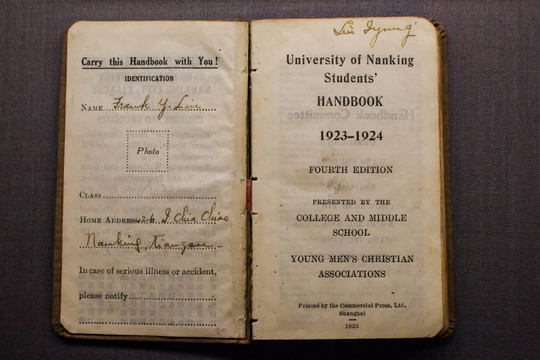 Carry this Handbook with You!
IDENTIFICATION
NAME Frank Y. Lin
Photo
CLASS
HOME ADDRESS 26 I Chia Chiao
Nanking, Kiangsu
In case of serious illness or accident,
please notify
University of Nanking
Students'
HANDBOOK
1923-1924
FOURTH EDITION
PRESENTED BY THE
COLLEGE AND MIDDLE
SCHOOL
YOUNG MEN'S CHRISTIAN
ASSOCIATIONS
Printed by the Commercial Press, Ltd.
Shanghai
1923